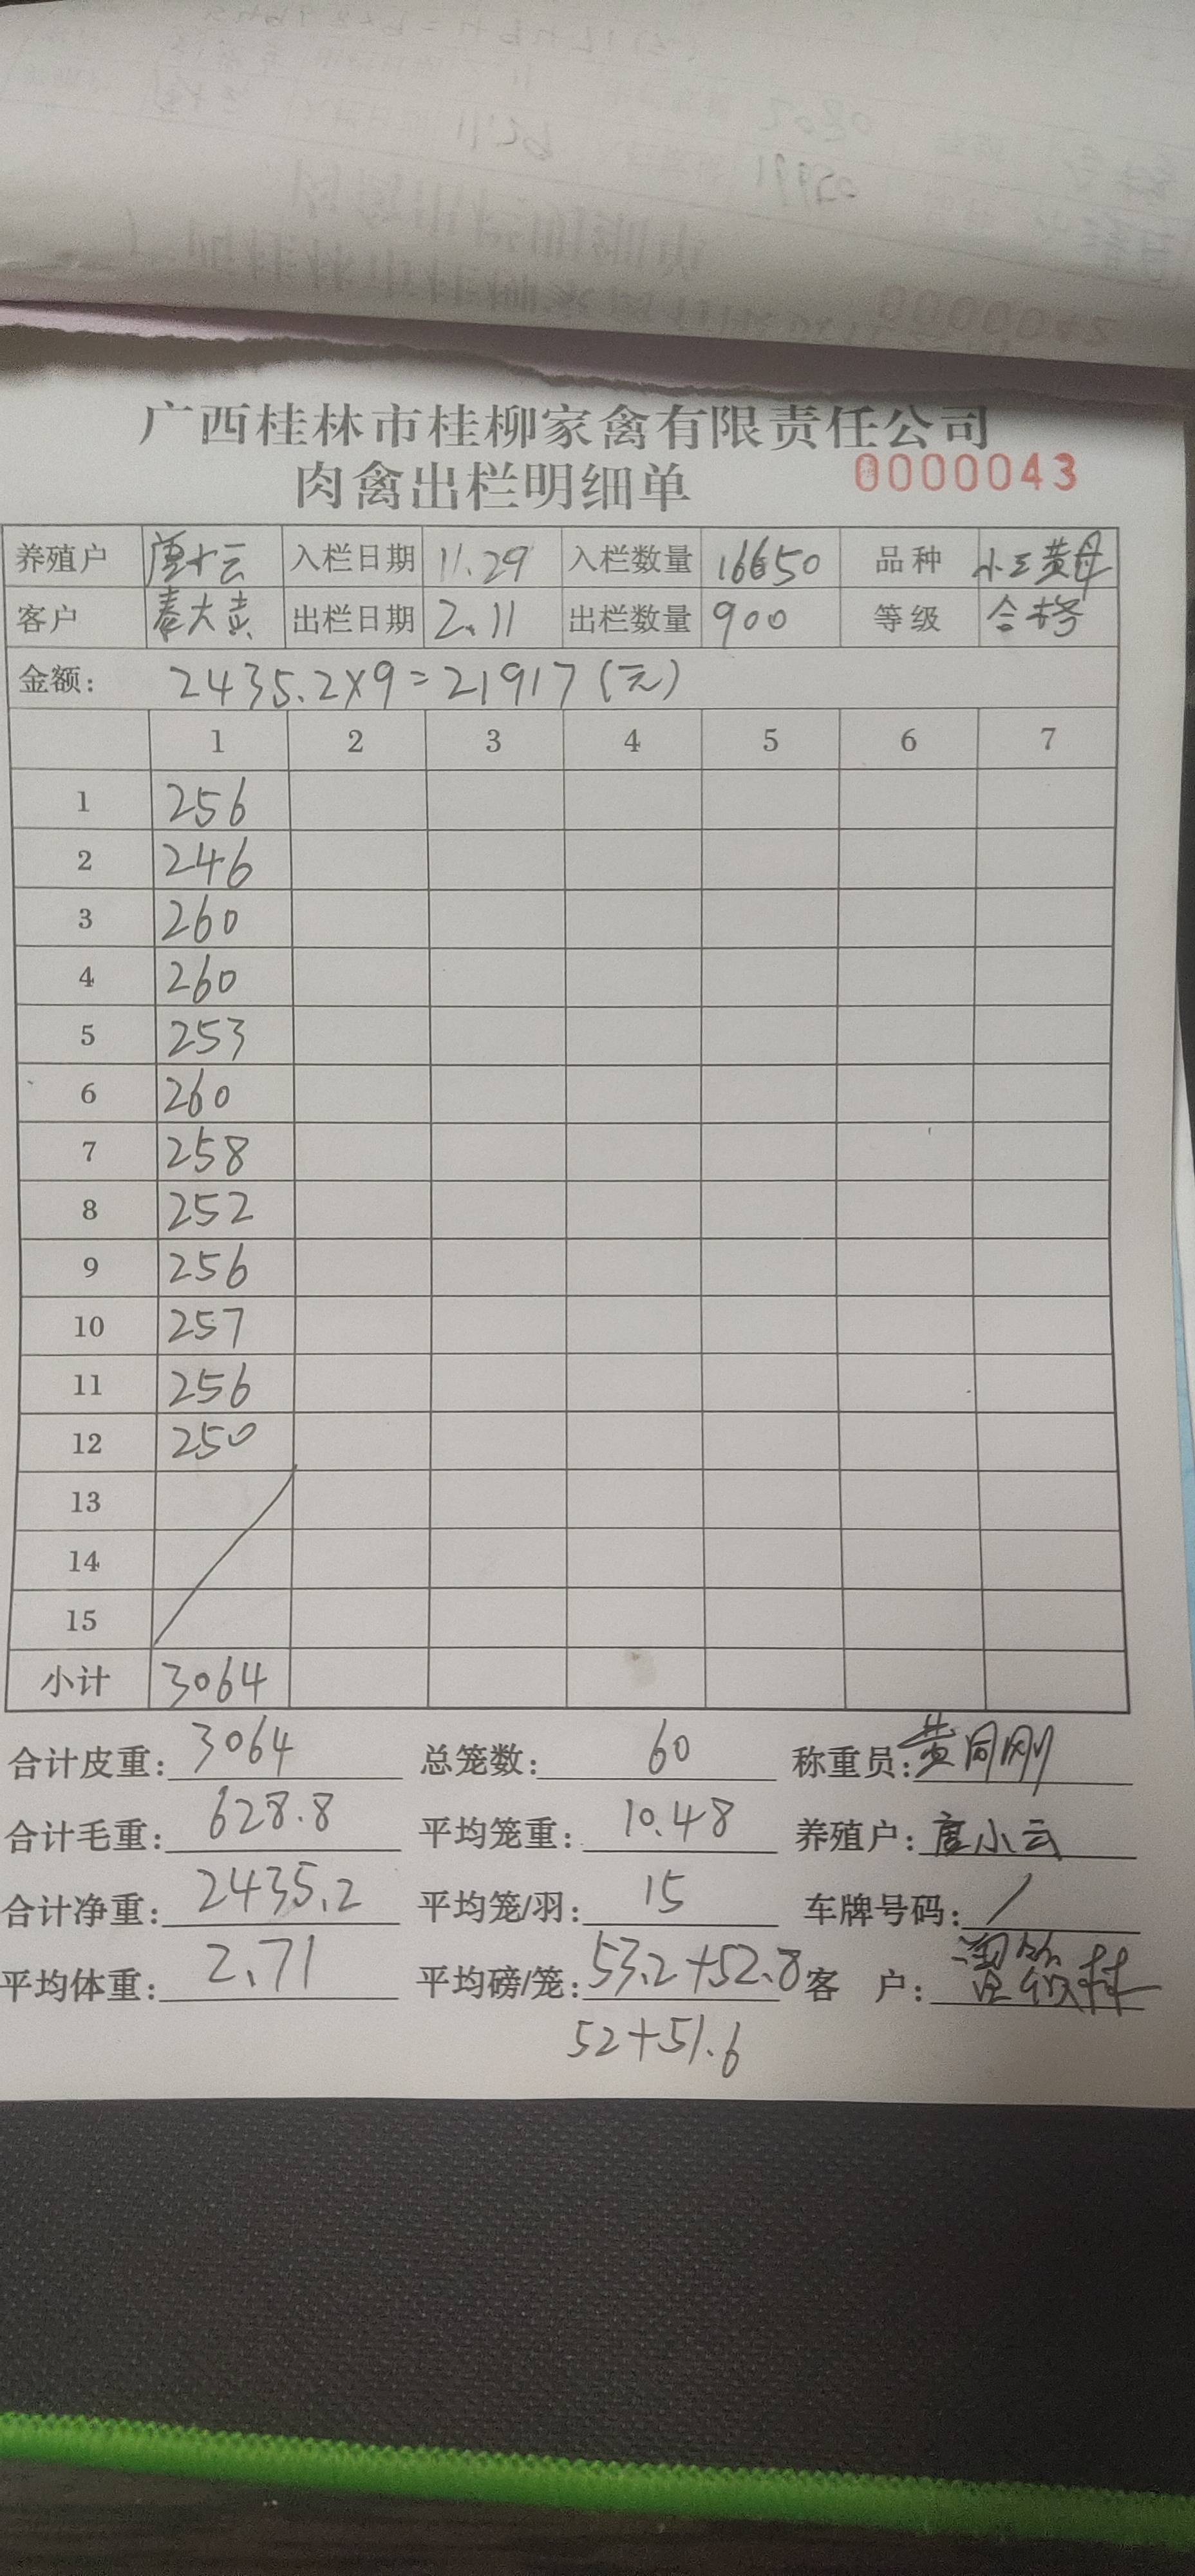 广西桂林市桂柳家禽有限责任公司
肉禽出栏明细单 0000043
养殖户 唐小云 入栏日期 11.29 入栏数量 16650 品种 小三黄母
客户 秦大志 出栏日期 2.11 出栏数量 900 等级 合格
金额: 2435.2×9=21917(元)
1 2 3 4 5 6 7
1 256
2 246
3 260
4 260
5 253
6 260
7 258
8 252
9 256
10 257
11 256
12 250
13
14
15
小计 3064
合计皮重: 3064 总笼数: 60 称重员: 黄同刚
合计毛重: 628.8 平均笼重: 10.48 养殖户: 唐小云
合计净重: 2435.2 平均笼/羽: 15 车牌号码: /
平均体重: 2.71 平均磅/笼: 53.2+52.8 客 户:
52+51.6